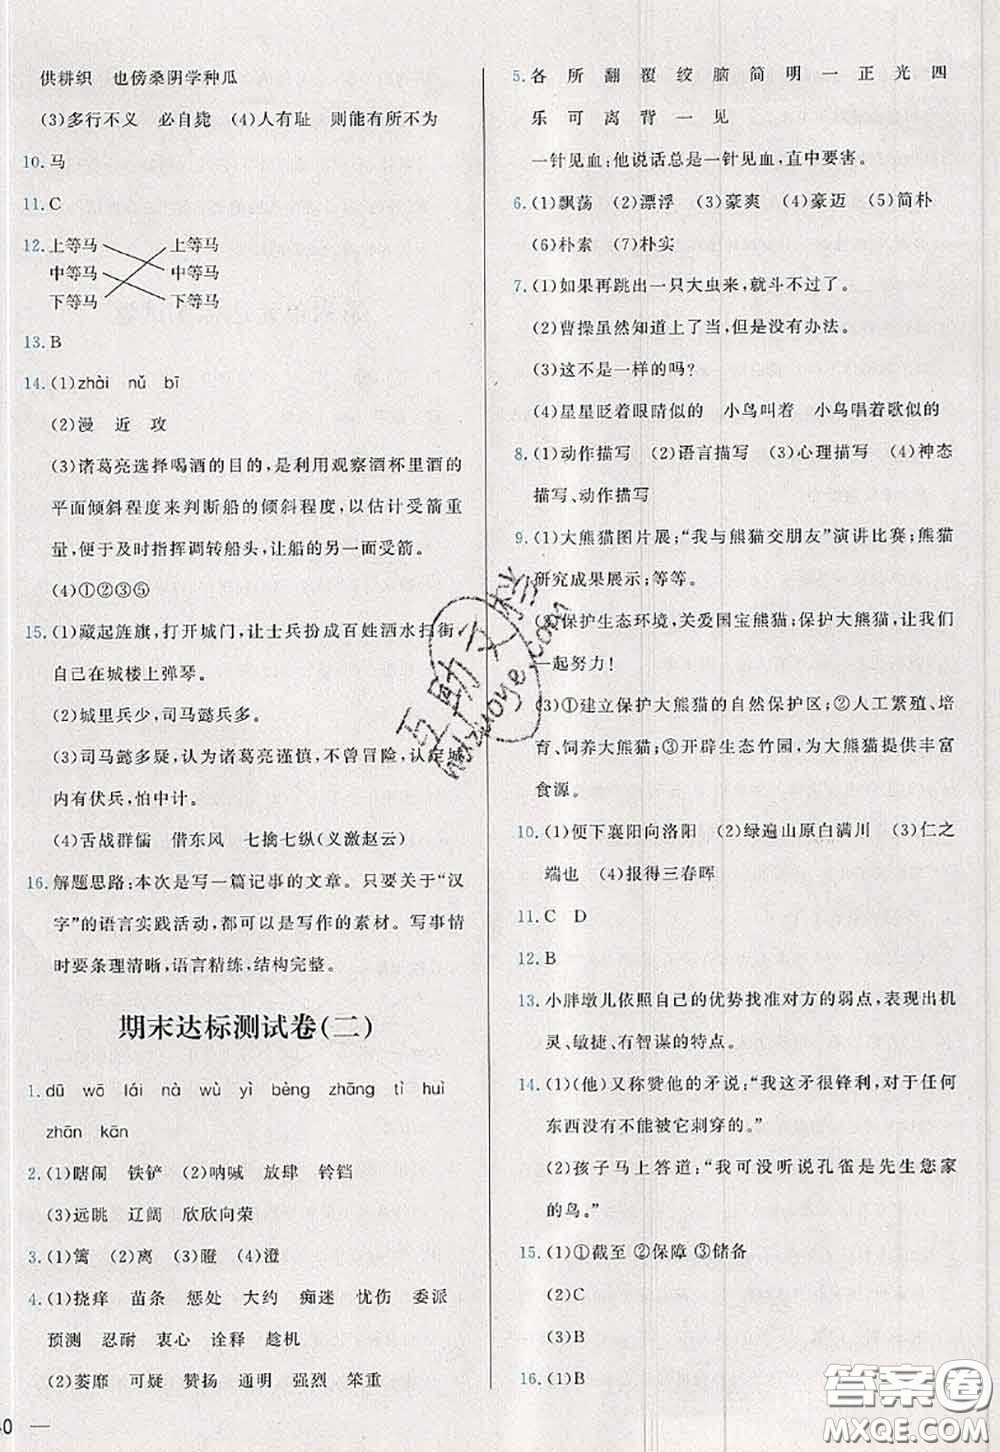 供耕织 也傍桑阴学种瓜
(3)多行不义 必自毙 (4)人有耻 则能有所不为
10. 马
11. C
12. 上等马 上等马
中等马 中等马
下等马 下等马
13. B
14. (1)zhài nǔ bī
(2)漫 近 攻
(3)诸葛亮选择喝酒的目的,是利用观察酒杯里酒的
平面倾斜程度来判断船的倾斜程度,以估计受箭重
量,便于及时指挥调转船头,让船的另一面受箭。
(4)①②③⑤
15. (1)藏起旌旗,打开城门,让士兵扮成百姓洒水扫街,
自己在城楼上弹琴。
(2)城里兵少,司马懿兵多。
(3)司马懿多疑,认为诸葛亮谨慎,不曾冒险,认定城
内有伏兵,怕中计。
(4)舌战群儒 借东风 七擒七纵(义激赵云)
16. 解题思路:本次是写一篇记事的文章。只要关于“汉
字”的语言实践活动,都可以是写作的素材。写事情
时要条理清晰,语言精练,结构完整。
期末达标测试卷(二)
1. dū wō lái nà wù yì bèng zhāng tì huì
zhān kān
2. (1)瞎闹 铁铲 (2)呐喊 放肆 铃铛
(3)远眺 辽阔 欣欣向荣
3. (1)篱 (2)离 (3)瞪 (4)澄
4. (1)挠痒 苗条 惩处 大约 痴迷 忧伤 委派
预测 忍耐 衷心 诠释 趁机
(2)萎靡 可疑 赞扬 通明 强烈 笨重
5. 各 所 翻 覆 绞 脑 简 明 一 正 光 四
乐 可 离 背 一 见
一针见血;他说话总是一针见血,直中要害。
6. (1)飘荡 (2)漂浮 (3)豪爽 (4)豪迈 (5)简朴
(6)朴素 (7)朴实
7. (1)如果再跳出一只大虫来,我就打不动了。
(2)曹操虽然知道上了当,但是没有办法。
(3)这不是一样的吗?
(4)星星眨着眼睛似的 小鸟叫着 小鸟唱着歌似的
8. (1)动作描写 (2)语言描写 (3)心理描写 (4)神态
描写、动作描写
9. (1)大熊猫图片展;“我与熊猫交朋友”演讲比赛;熊猫
研究成果展示;等等。
(2)保护生态环境,关爱国宝熊猫;保护大熊猫,让我们
一起努力!
(3)①建立保护大熊猫的自然保护区;②人工繁殖、培
育、饲养大熊猫;③开辟生态竹园,为大熊猫提供丰富
食源。
10. (1)便下襄阳向洛阳 (2)绿遍山原白满川 (3)仁之
端也 (4)报得三春晖
11. C D
12. B
13. 小胖墩儿依照自己的优势找准对方的弱点,表现出机
灵、敏捷、有智谋的特点。
14. (1)(他)又称赞他的矛说:“我这矛很锋利,对于任何
东西没有不能被它刺穿的。”
(2)孩子马上答道:“我可没听说孔雀是先生您家
的鸟。”
15. (1)①截至 ②保障 ③储备
(2)C
(3)B
16. (1)B
互助文库
huzuoye.com
答案圈
MXQE.COM